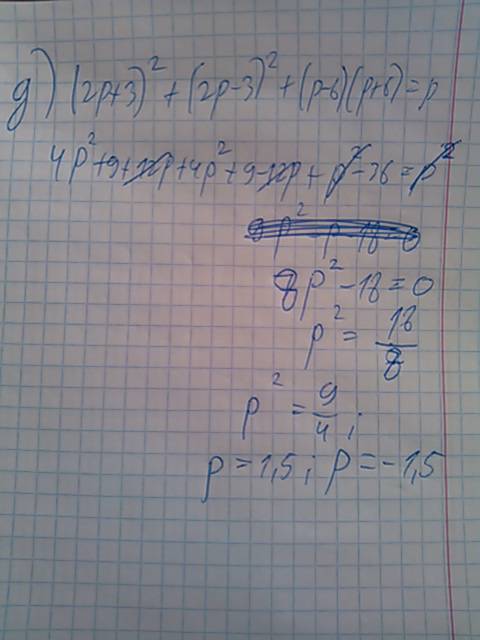 д) (2p+3)² + (2p-3)² + (p-6)(p+6) = p
4p²+9+12p+4p²+9-12p+p²-36=p²
8p²-18=0
p² = 18/8
p² = 9/4;
p=1,5; p=-1,5